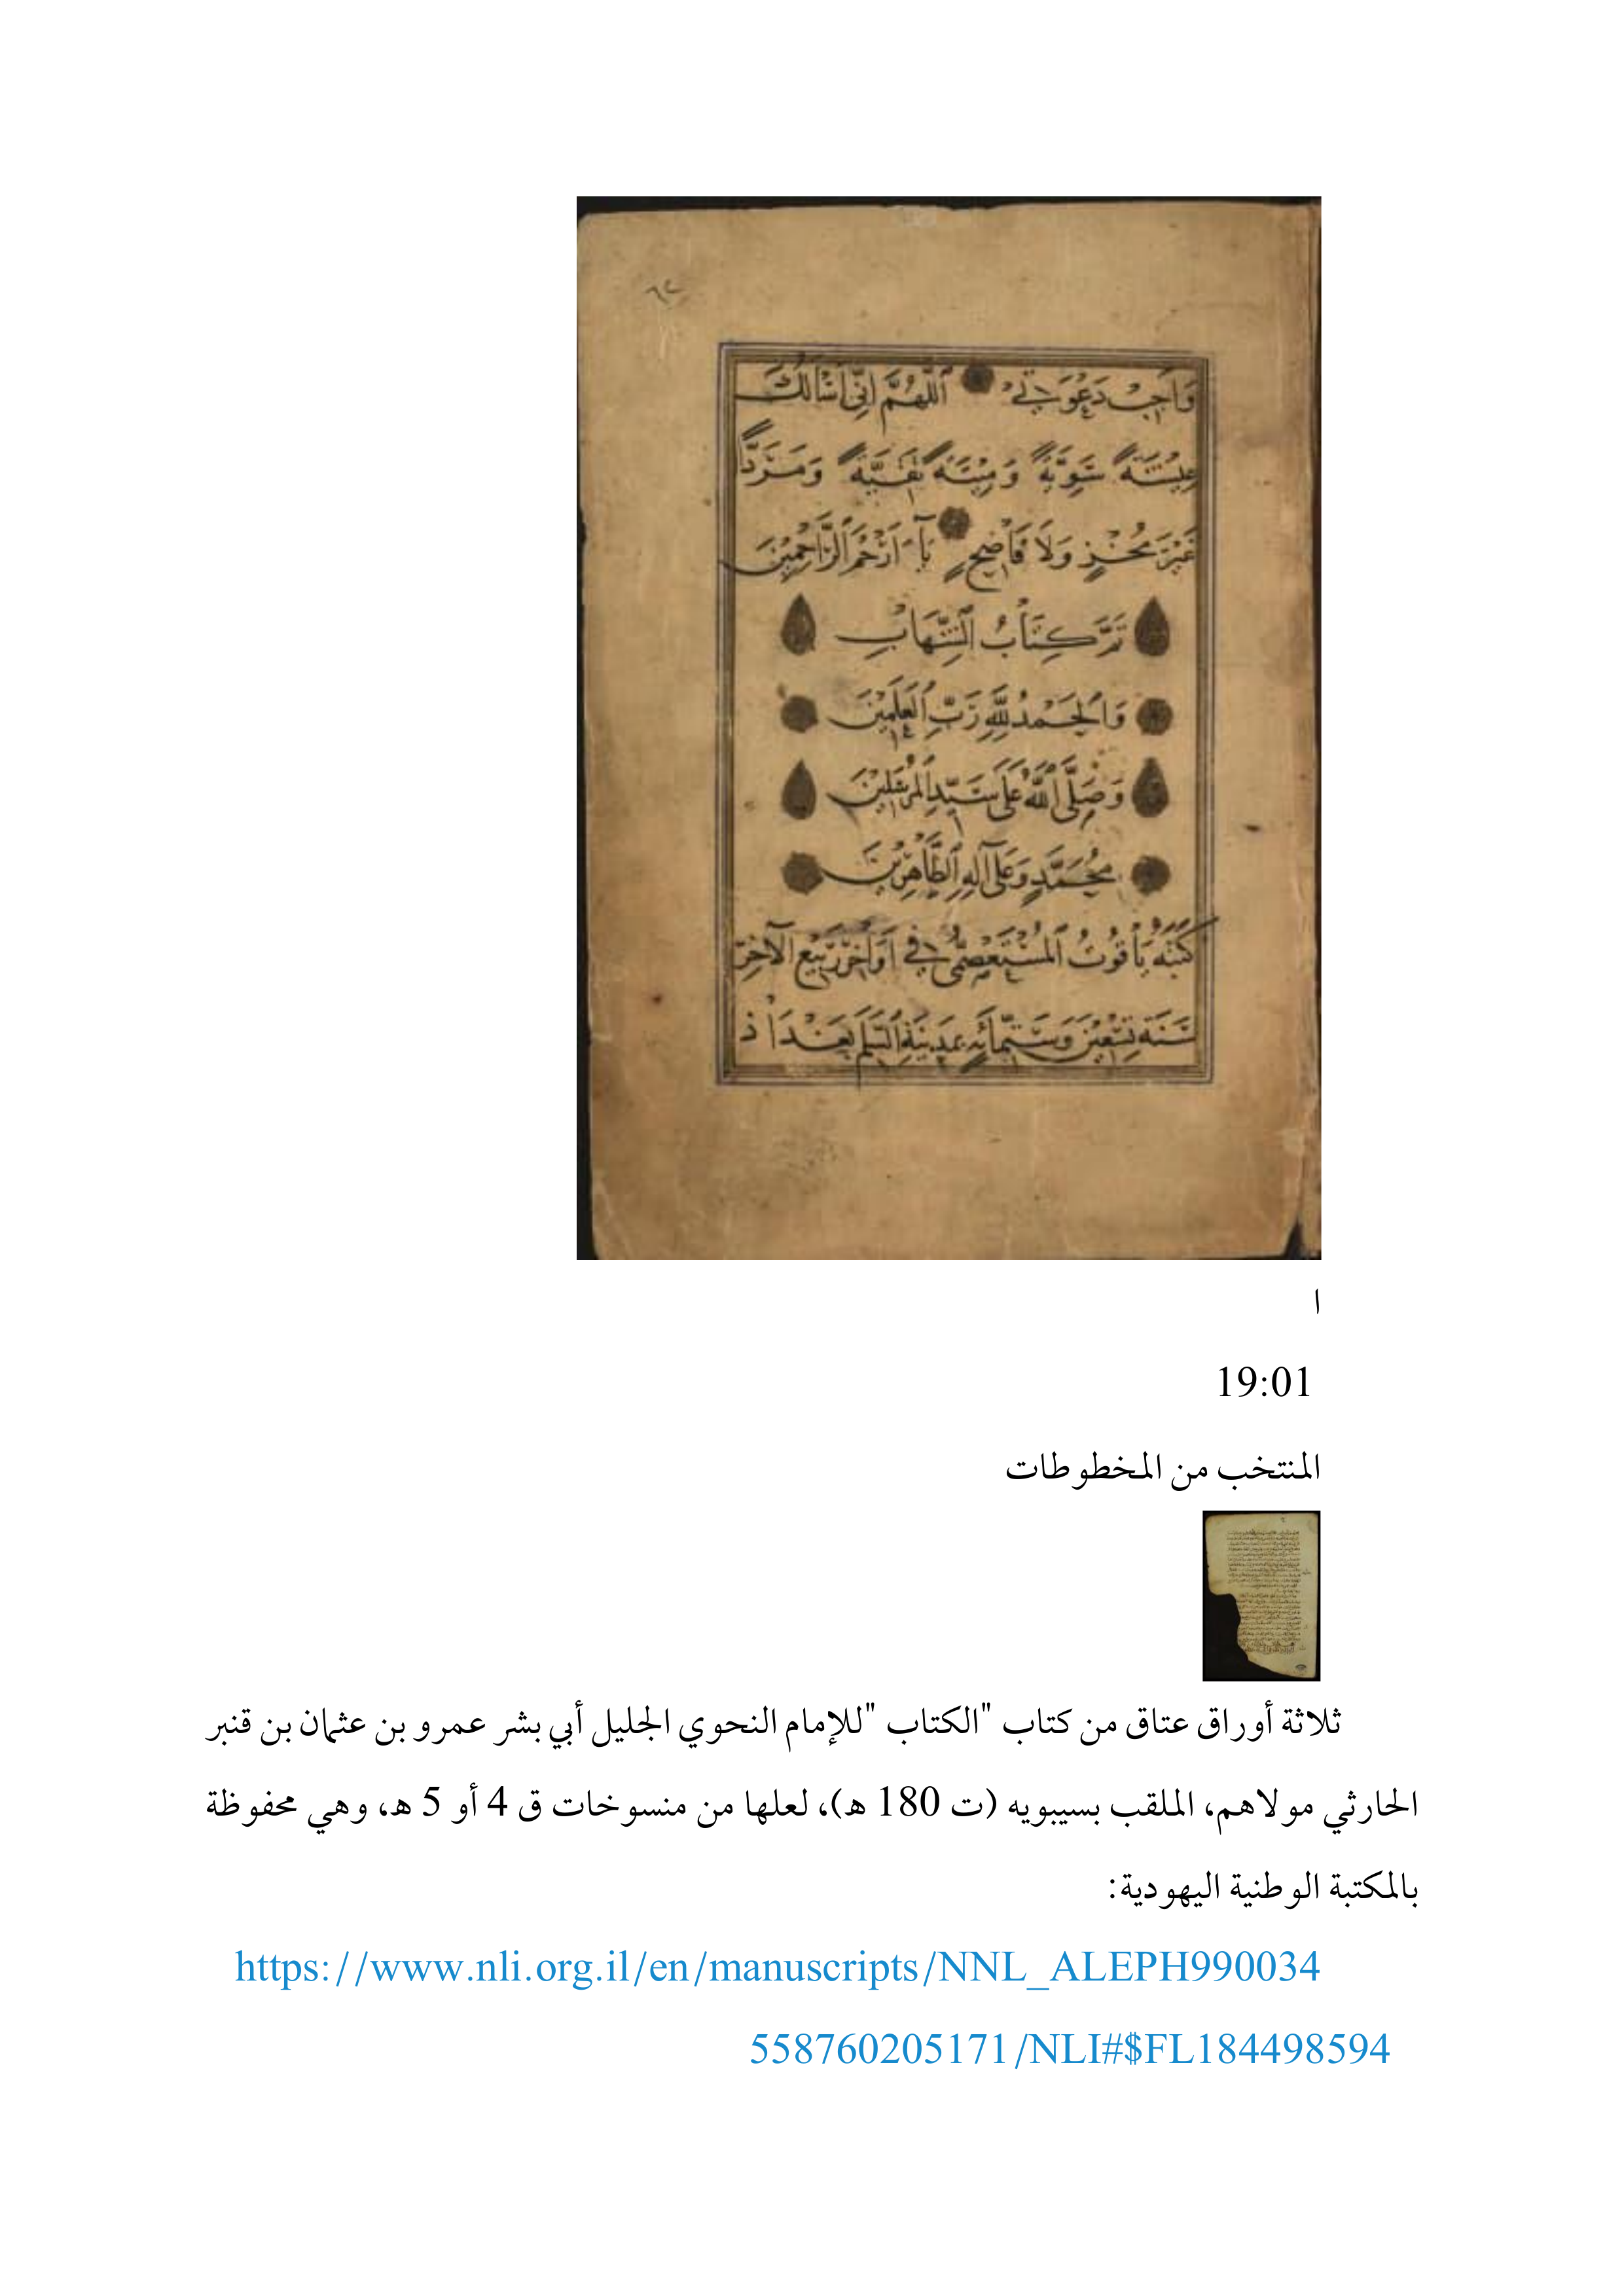 ٦٢
وَاَجِبْ دَعْوَتِي اَللّٰهُمَّ اِنِّي اَسْاَلُكَ
عِيْشَةً سَوِيَّةً وَمِيْتَةً نَقِيَّةً وَمَرَدًّا
غَيْرَ مُخْزٍ وَلَا فَاضِحٍ يَا اَرْحَمَ الرَّاحِمِيْنَ
تَمَّ كِتَابُ الشِّهَابِ
وَالْحَمْدُ لِلّٰهِ رَبِّ الْعٰلَمِيْنَ
وَصَلَّى اللّٰهُ عَلَى سَيِّدِ الْمُرْسَلِيْنَ
مُحَمَّدٍ وَعَلَى آلِهِ الطَّاهِرِيْنَ
كَتَبَهُ يَاقُوْتُ الْمُسْتَعْصِمِيُّ فِي اَوَاخِرِ رَبِيْعِ الْآخِرِ
سَنَةَ تِسْعِيْنَ وَسِتِّمِائَةٍ بِمَدِيْنَةِ السَّلٰمِ بَغْدَاذ
ا
19:01
المنتخب من المخطوطات
ثلاثة أوراق عتاق من كتاب "الكتاب "للإمام النحوي الجليل أبي بشر عمرو بن عثمان بن قنبر
الحارثي مولاهم، الملقب بسيبويه (ت 180 هـ)، لعلها من منسوخات ق 4 أو 5 هـ، وهي محفوظة
بالمكتبة الوطنية اليهودية:
https://www.nli.org.il/en/manuscripts/NNL_ALEPH990034
558760205171/NLI#$FL184498594